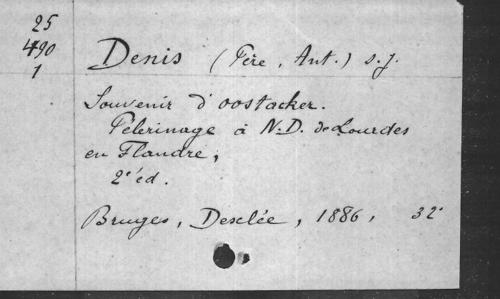 25
490
1
Denis (Père, Ant.) s.j.
Souvenir d'oostacker.
Pélerinage à N.D. de Lourdes
en Flandre,
2e éd.
Bruges, Desclée, 1886, 32°